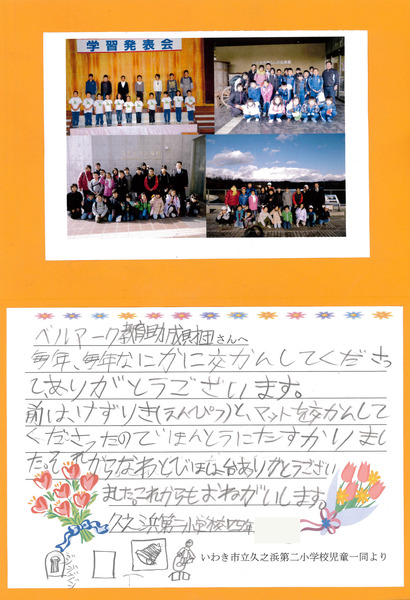 学習発表会
ベルマーク教育助成財団さんへ
毎年、毎年なにかに交かんしてくださっ
てありがとうございます。
前は、けずりき(えんぴつ)と、マットを交かんして
くださったのでほんとうにたすかりまし
た。それからなわとびはん台ありがとうござい
ました。これからもおねがいします。
久之浜第二小学校四年
いわき市立久之浜第二小学校児童一同より